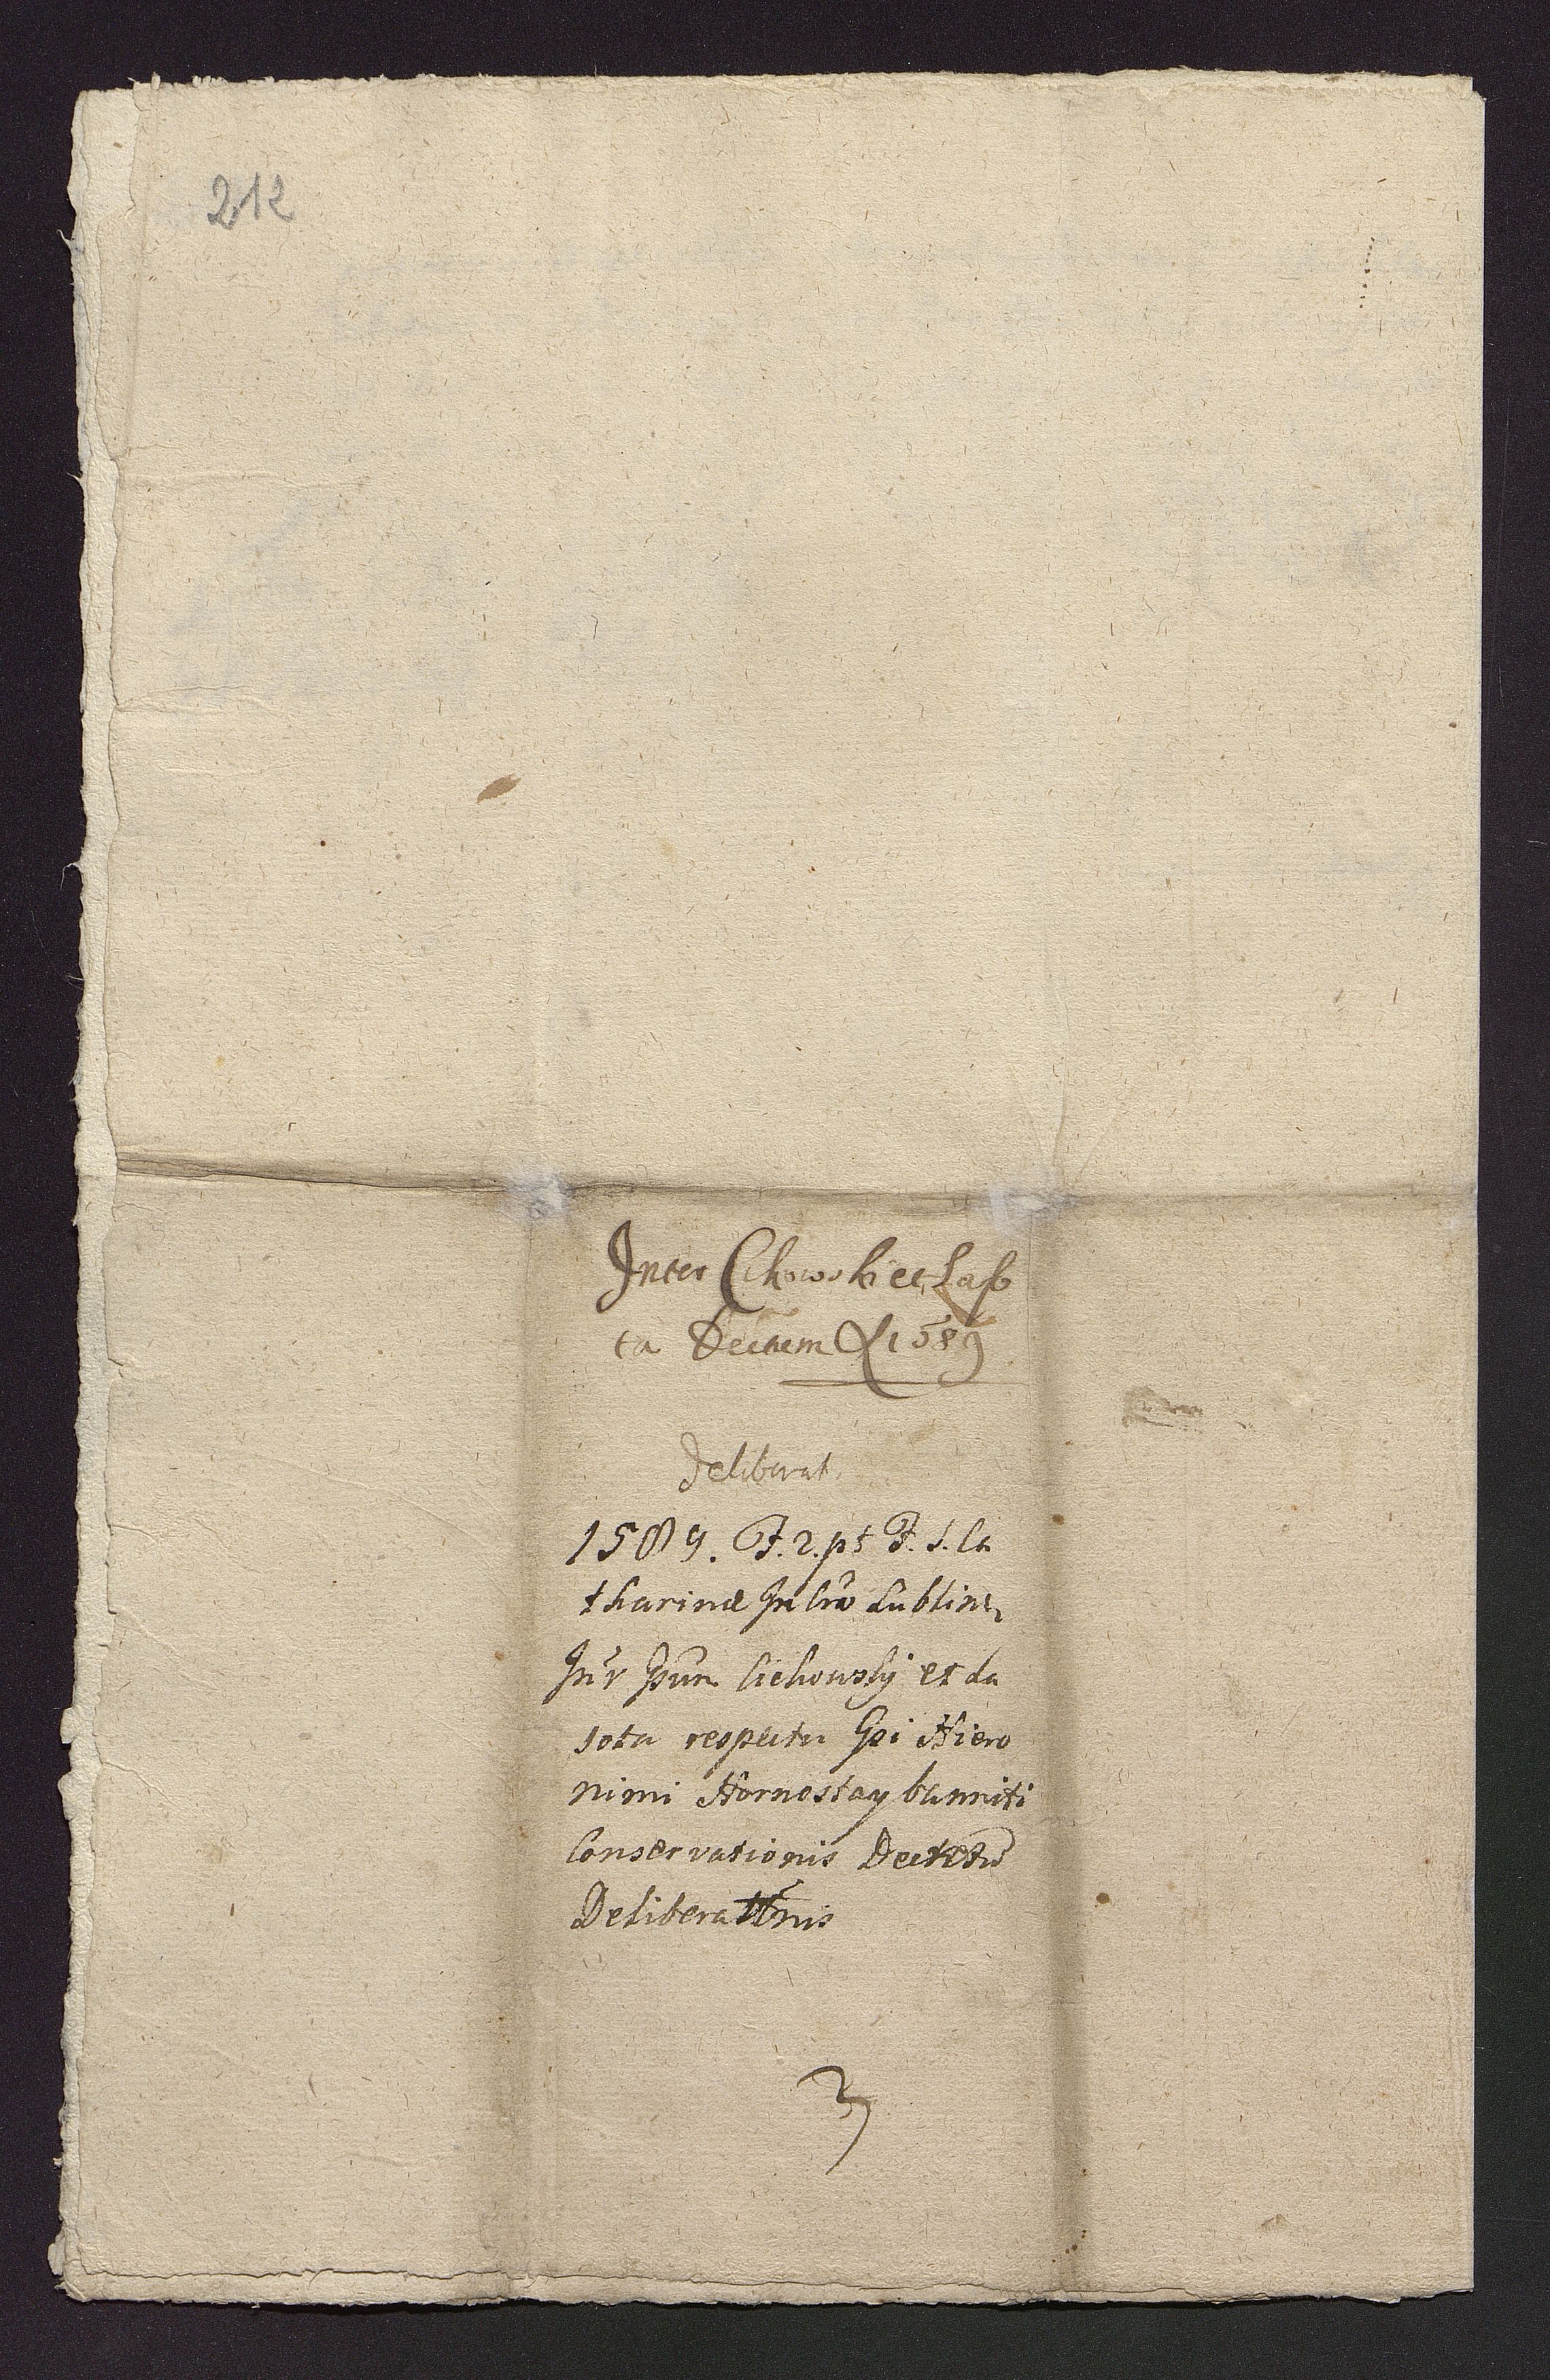 212
Inter Cihowski et Laso
ta Decrem 1589
Deliberat.
1589. F. 2. pt F. S. Ca
tharinæ In Crō Lublinēn
Intr Gūm Cichowskÿ et La
sota respectu Gsi Hiero
nimi Hornostay banniti
Conservationis Decretū
Deliberatōnis
3